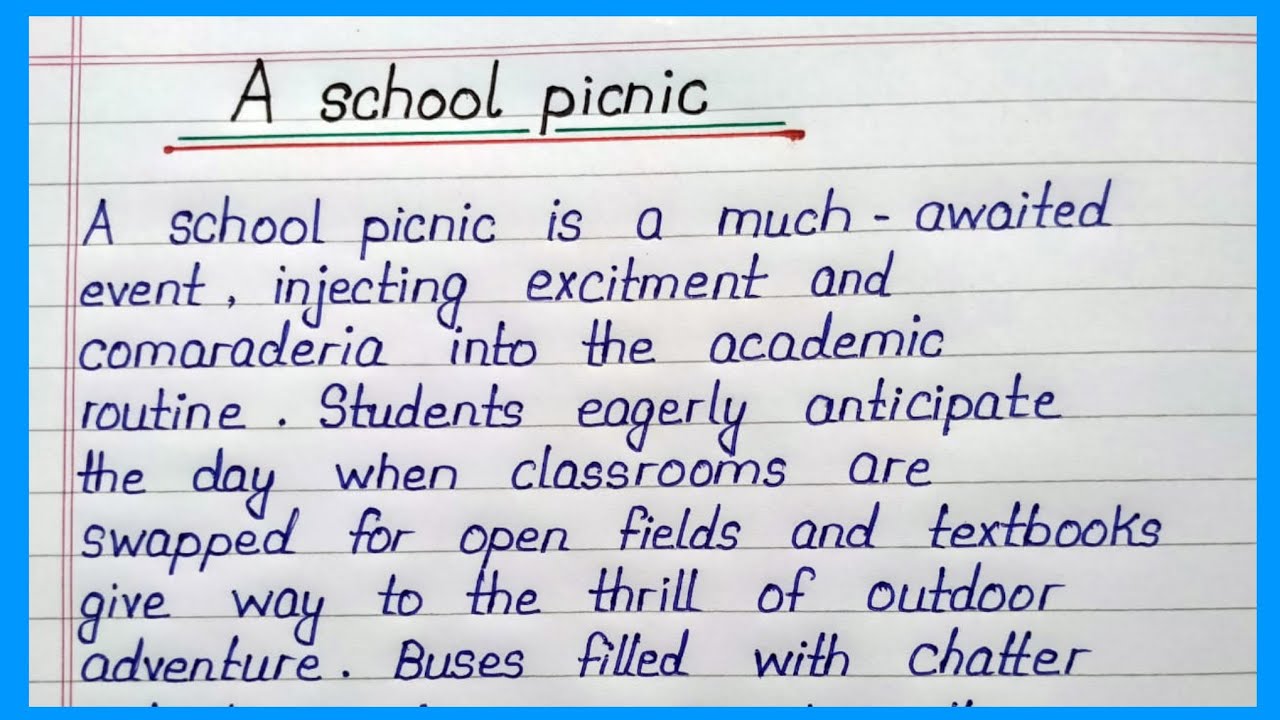 A school picnic
A school picnic is a much - awaited
event, injecting excitment and
comaraderia into the academic
routine. Students eagerly anticipate
the day when classrooms are
swapped for open fields and textbooks
give way to the thrill of outdoor
adventure. Buses filled with chatter